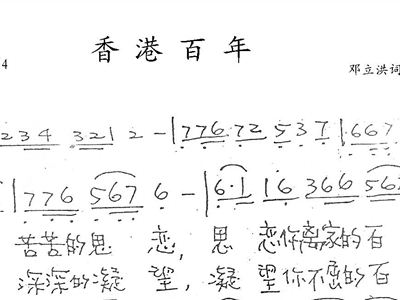 香港百年
4
邓立洪词
234 3212-|776 72 537|·667
|776 5676-|6·1 16 366 56
苦苦的思 恋,思 恋你离家的百
深深的凝 望,凝 望你不歴的百